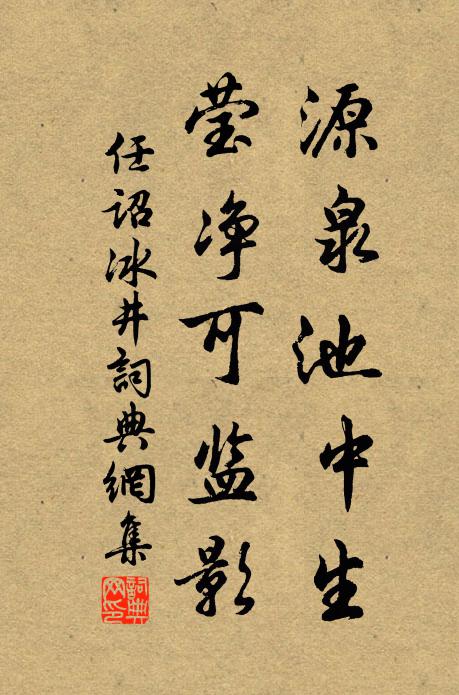 源泉池中生
莹净可监影
任诏冰井詞典網集
詞典网印